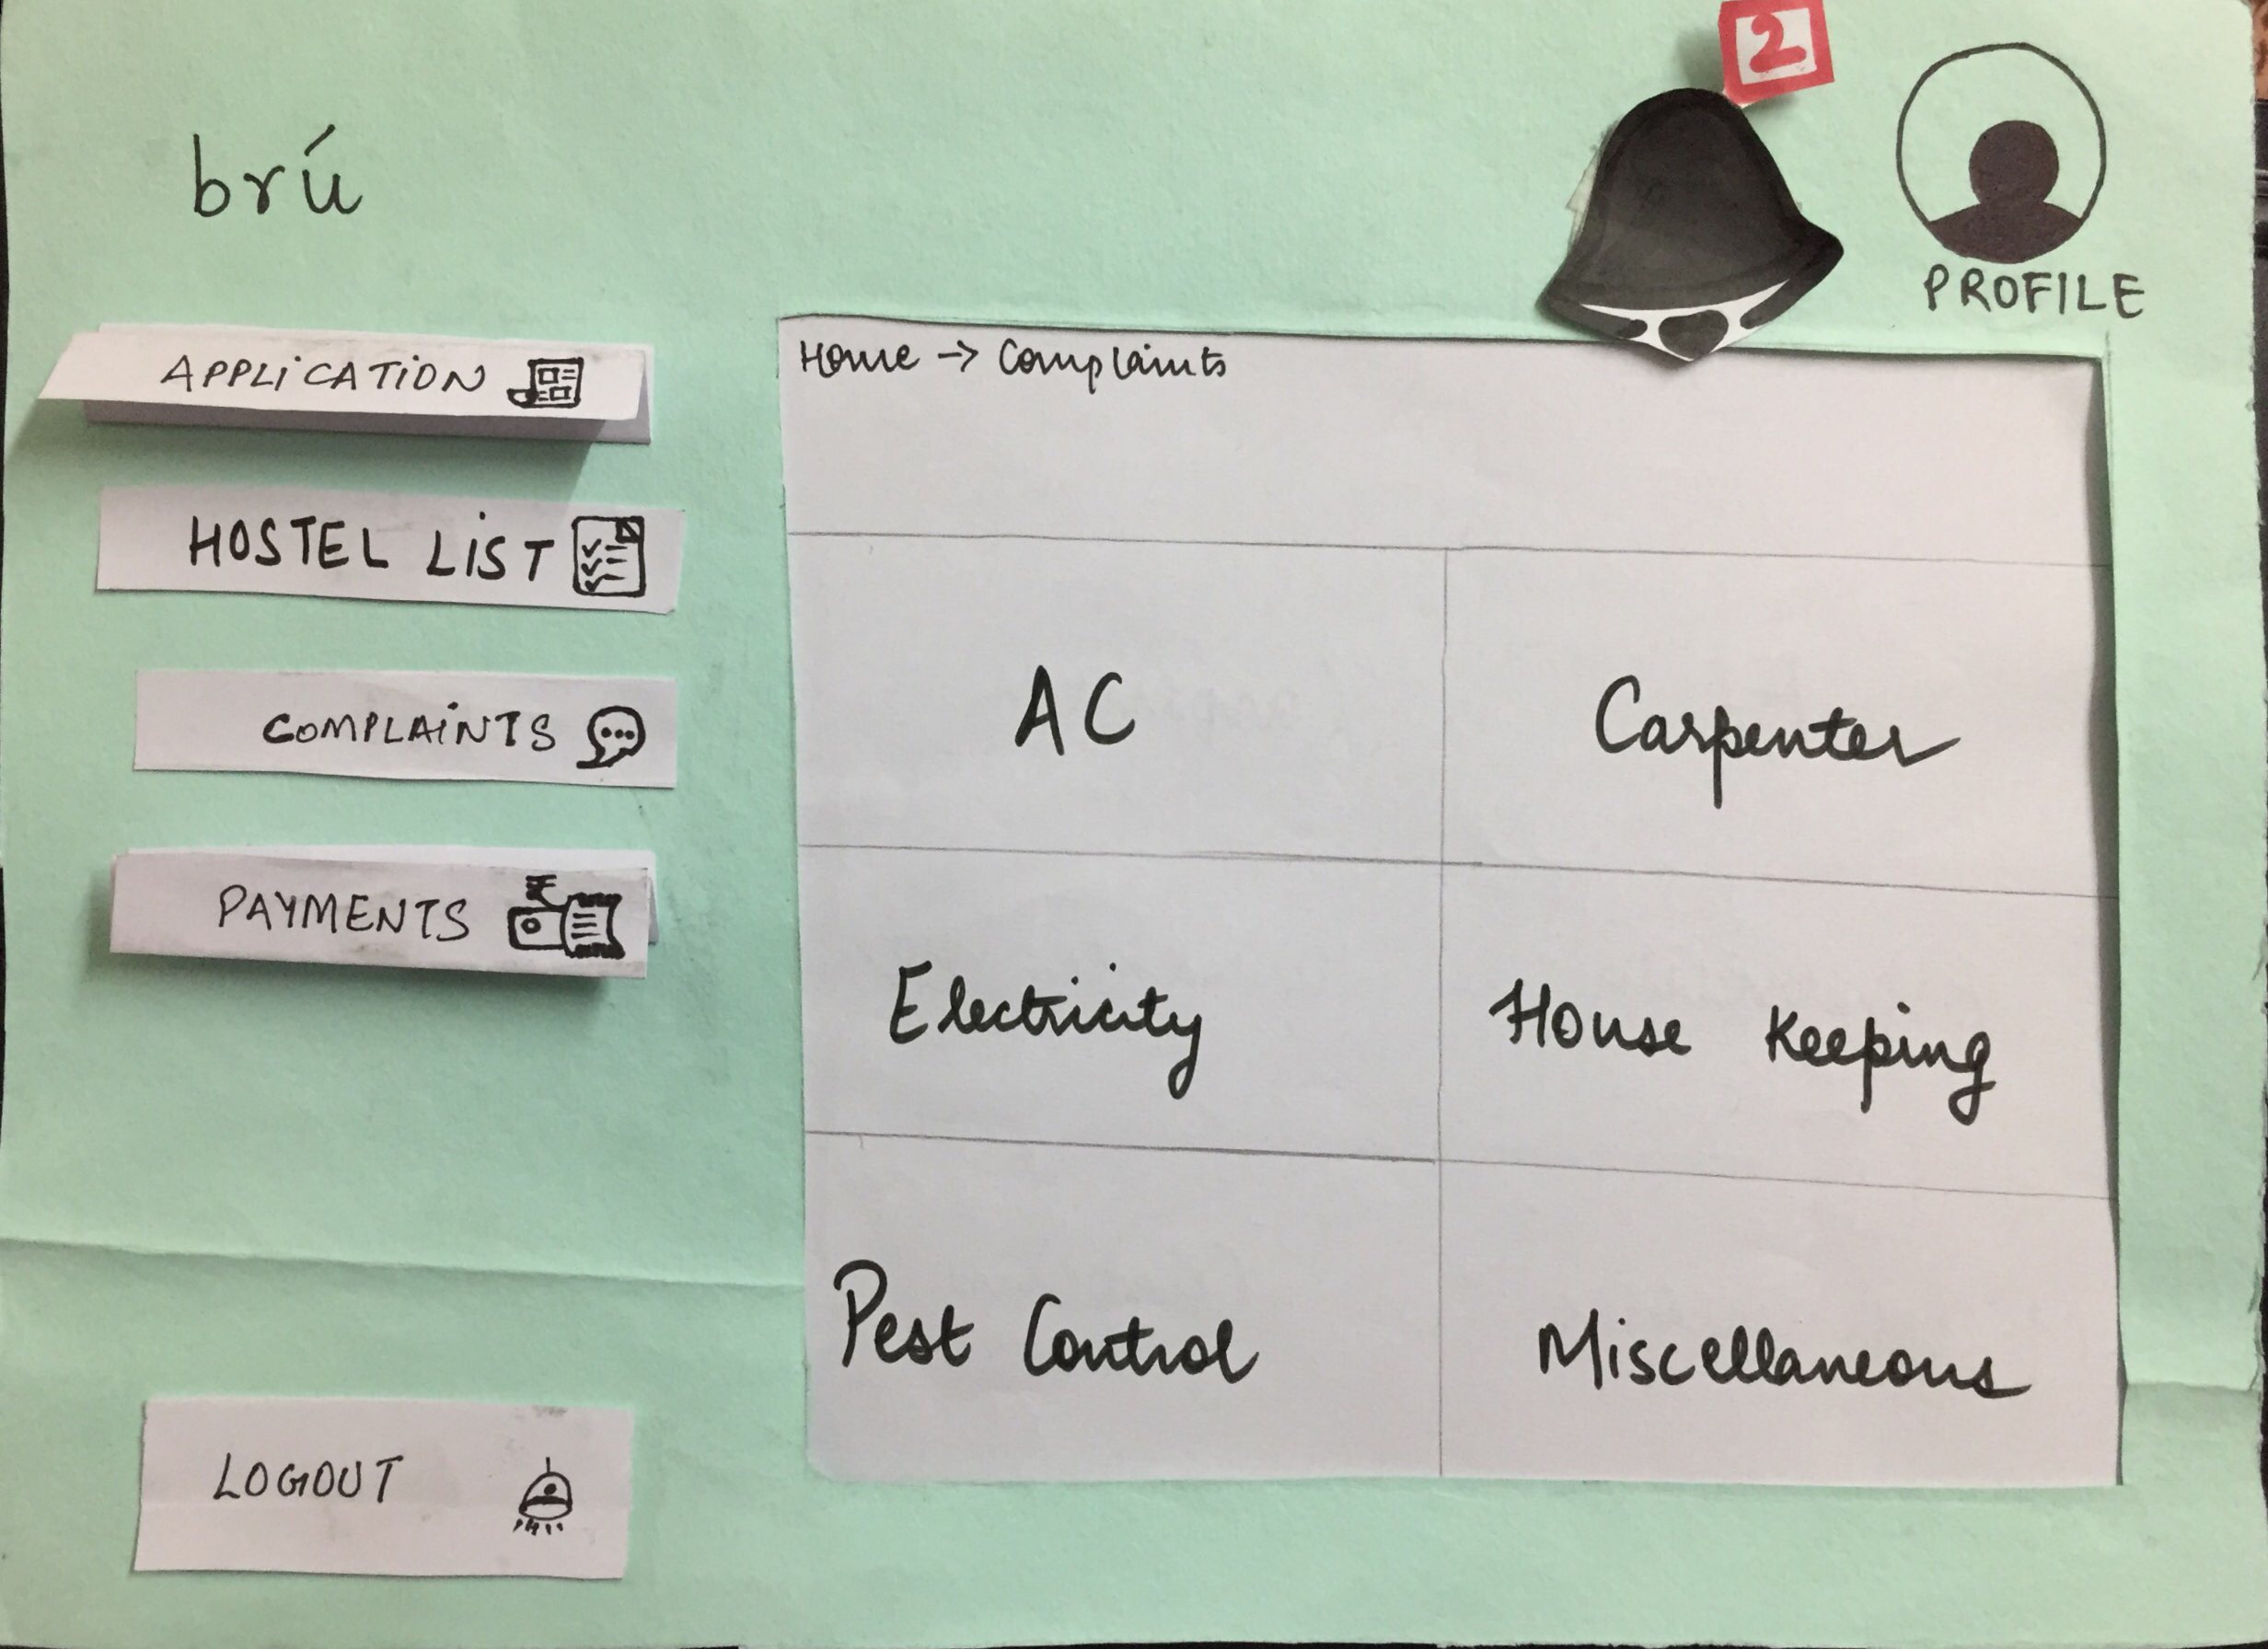 2
brú
PROFILE
APPLICATION
HOSTEL LIST
COMPLAINTS
PAYMENTS
LOGOUT
Home → Complaints
AC
Carpenter
Electricity
House Keeping
Pest Control
Miscellaneous